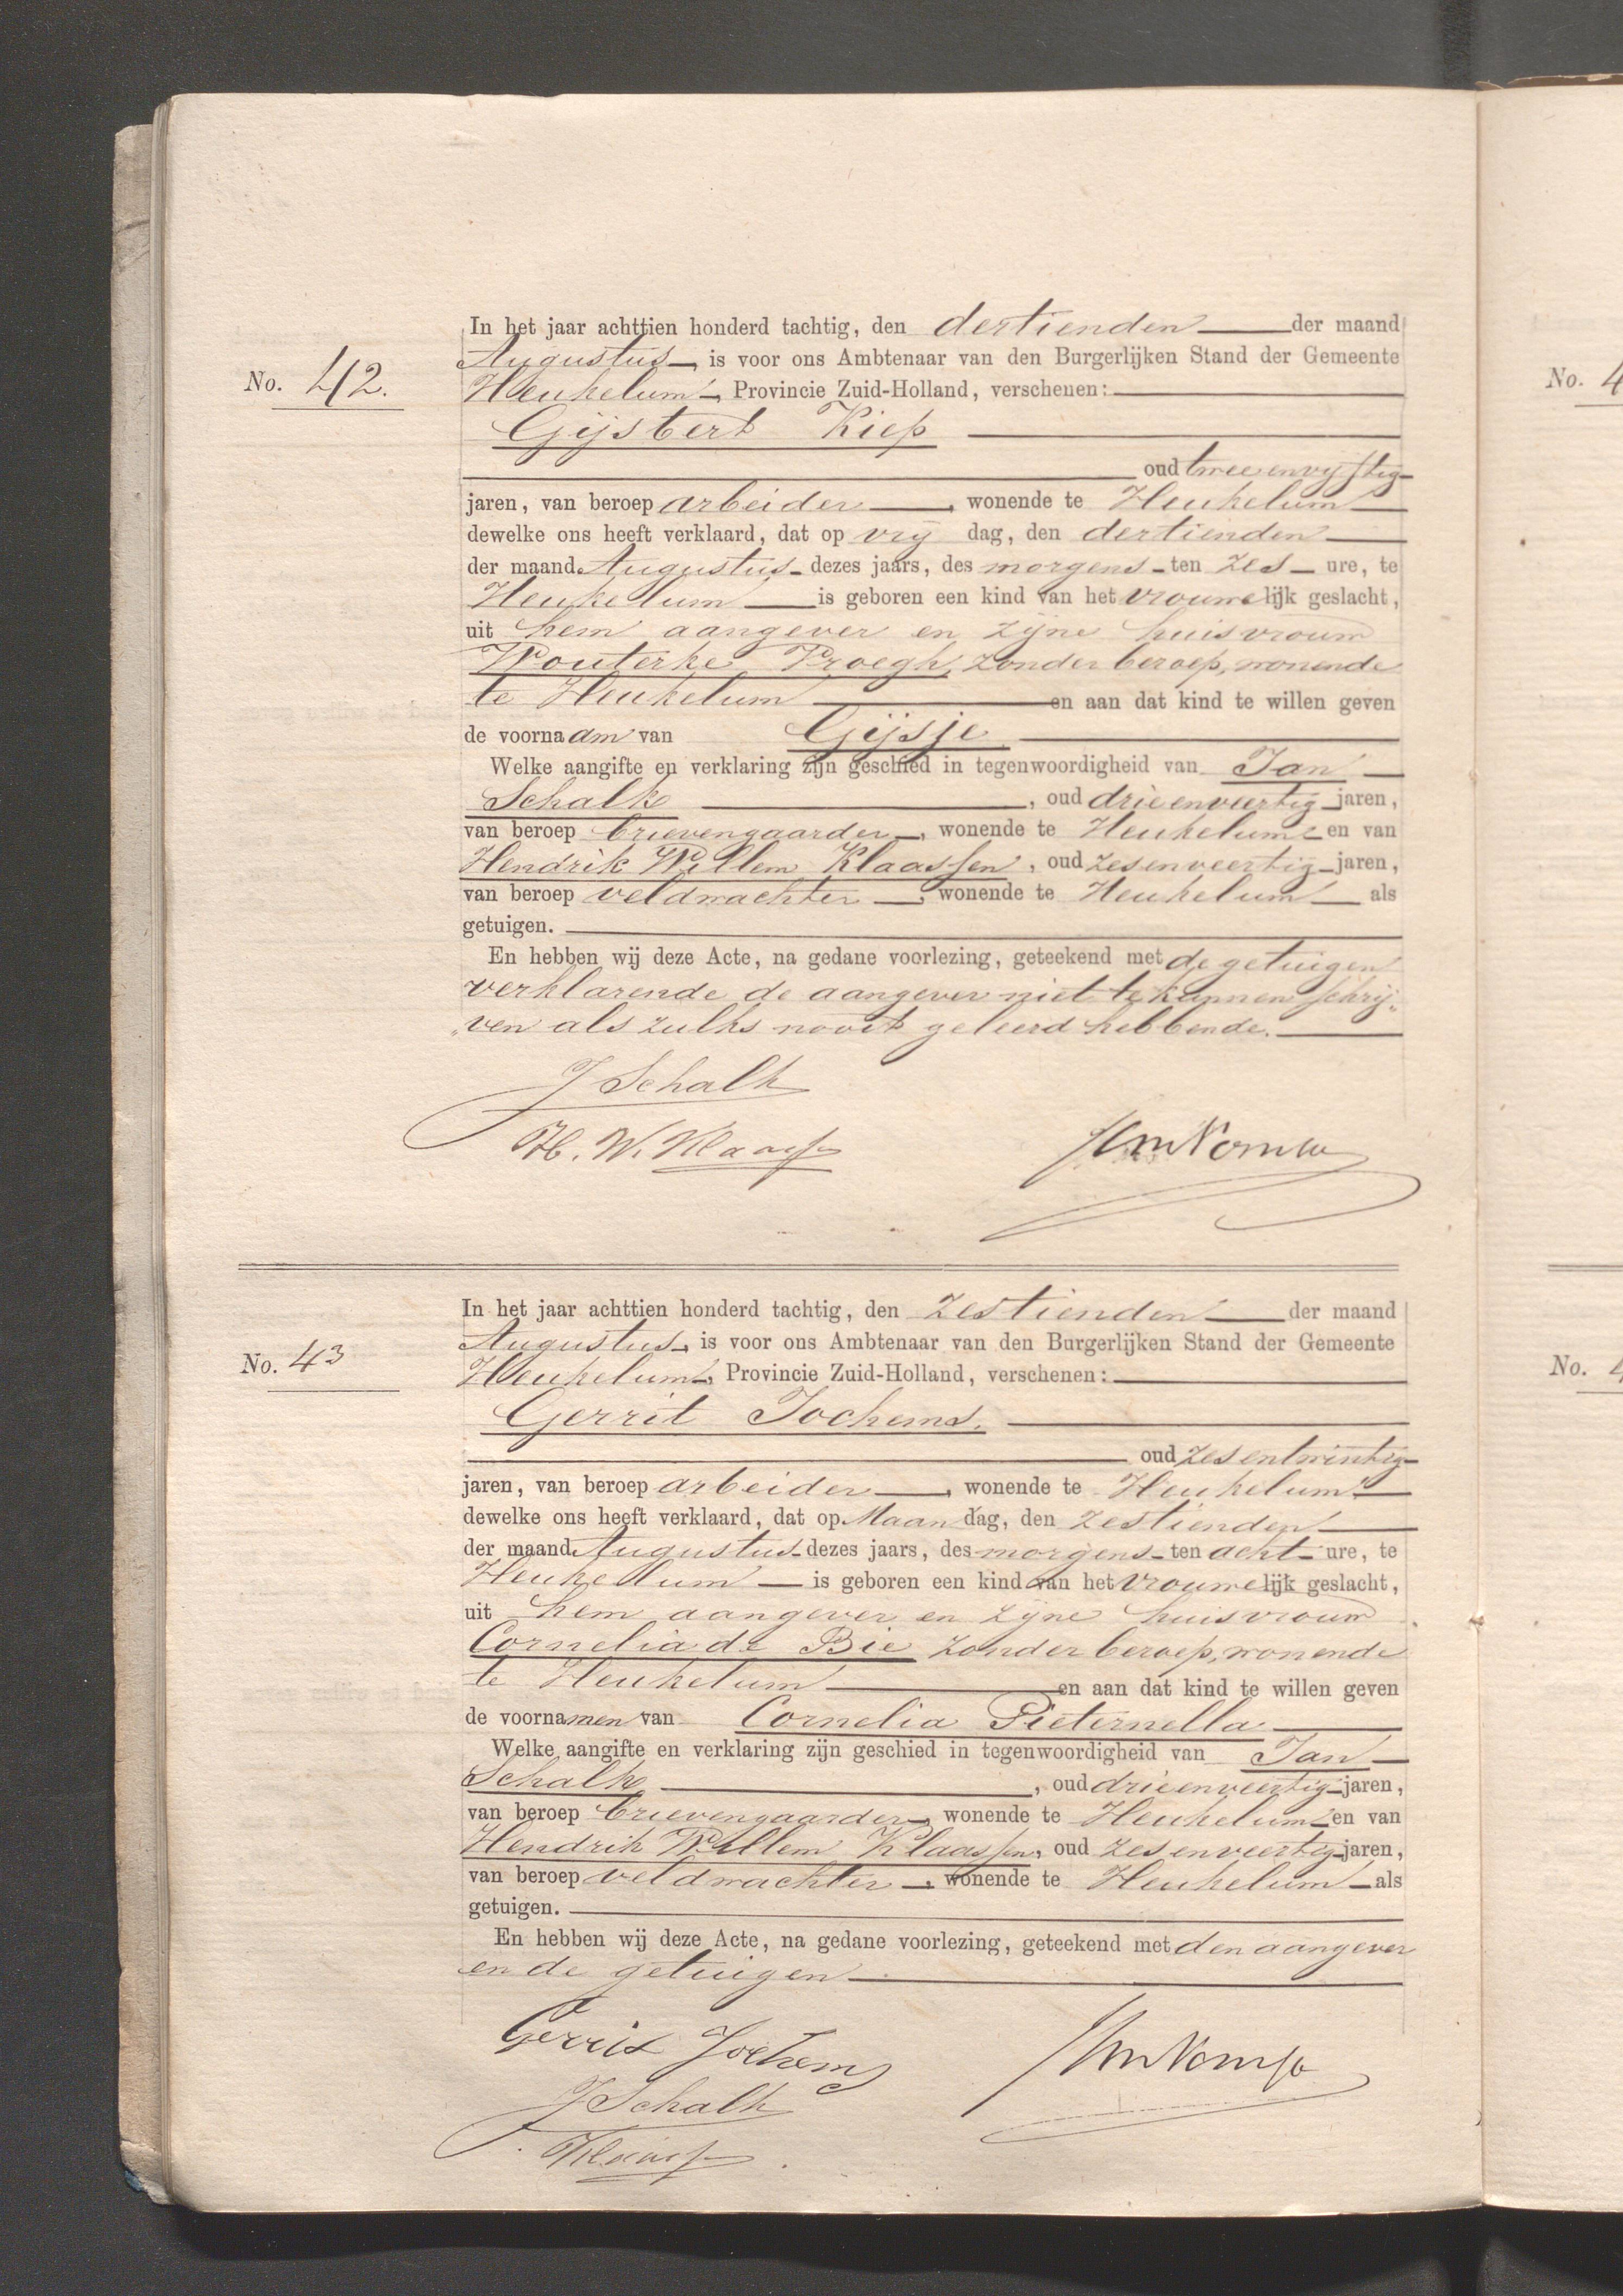 No. 42.
In het jaar achttien honderd tachtig, den dertienden der maand
Augustus, is voor ons Ambtenaar van den Burgerlijken Stand der Gemeente
Heukelum, Provincie Zuid-Holland, verschenen:
Gijsbert Kiep
oud twee en vijftig
jaren, van beroep arbeider, wonende te Heukelum
dewelke ons heeft verklaard, dat op vrij dag, den dertienden
der maand Augustus dezes jaars, des morgens ten zes ure, te
Heukelum is geboren een kind van het vrouwelijk geslacht,
uit hem aangever en zijne huisvrouw
Wouterke Proegh, zonder beroep, wonende
te Heukelum en aan dat kind te willen geven
de voornaam van Gijsje
Welke aangifte en verklaring zijn geschied in tegenwoordigheid van Jan
Schalk, oud drieenveertig jaren,
van beroep brievengaarder, wonende te Heukelum en van
Hendrik Willem Klaassen, oud zesenveertig jaren,
van beroep veldwachter, wonende te Heukelum als
getuigen.
En hebben wij deze Acte, na gedane voorlezing, geteekend met de getuigen
verklarende de aangever niet te kunnen schrij„
„ven als zulks nooit geleerd hebbende.
J Schalk
H. W. Klaass
No. 43
In het jaar achttien honderd tachtig, den zestienden der maand
Augustus, is voor ons Ambtenaar van den Burgerlijken Stand der Gemeente
Heukelum, Provincie Zuid-Holland, verschenen:
Gerrit Jochems.
oud zesentwintig
jaren, van beroep arbeider, wonende te Heukelum
dewelke ons heeft verklaard, dat op Maan dag, den zestienden
der maand Augustus dezes jaars, des morgens ten acht ure, te
Heukelum is geboren een kind van het vrouwelijk geslacht,
uit hem aangever en zijne huisvrouw
Cornelia de Bie zonder beroep, wonende
te Heukelum en aan dat kind te willen geven
de voornamen van Cornelia Pieternella
Welke aangifte en verklaring zijn geschied in tegenwoordigheid van Jan
Schalk, oud drieenveertig jaren,
van beroep brievengaarder, wonende te Heukelum en van
Hendrik Willem Klaassen, oud zesenveertig jaren,
van beroep veldwachter, wonende te Heukelum als
getuigen.
En hebben wij deze Acte, na gedane voorlezing, geteekend met den aangever
en de getuigen
Gerrit Jochems
J Schalk
Klaass
No. 4
No. 4